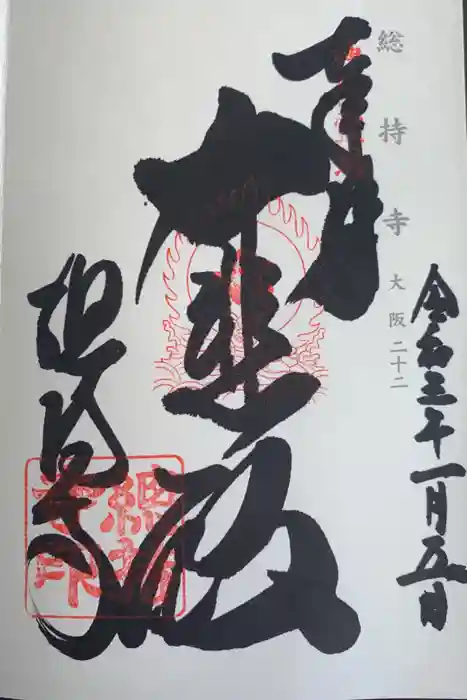 総持寺 大阪二十二
令和三年一月五日
奉拝
大悲殿
総持寺
總持
寺印